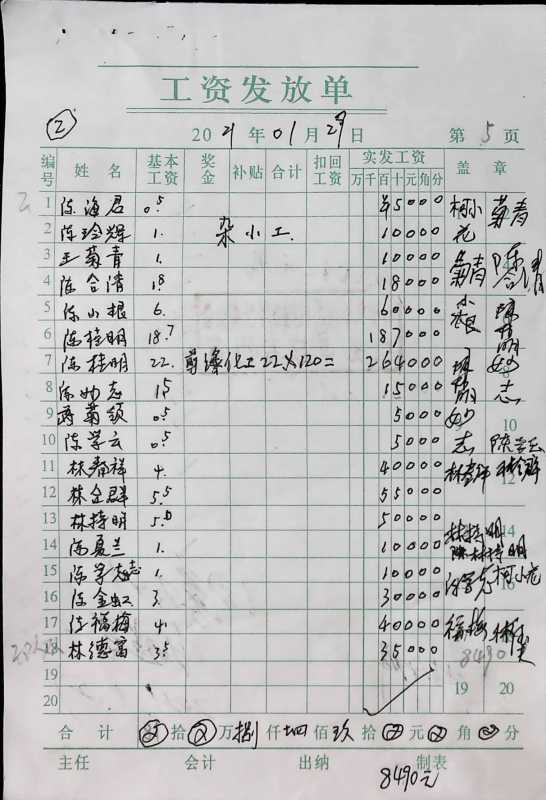 工资发放单
②
2021年01月29日 第5页
编号 姓名 基本工资 奖金 补贴 合计 扣回工资 实发工资 万千百十元角分 盖章
1 陈海君 0.5 45000
2 陈玲辉 1. 杂小工 10000
3 王菊青 1. 10000 菊青
4 陈合清 18000
5 陈小根 6. 60000
6 陈桂明 18.7 187000
7 陈桂明 22. 22×120= 264000
8 陈妙志 1.5 15000 妙志
9 0.5 5000
10 陈学云 0.5 5000 陈学云
11 林春祥 4. 40000
12 林金群 5.5 55000
13 林持明 50000 林持明
14 陈夏兰 1. 10000
15 1. 10000 柯小花
16 陈金虹 3. 30000
17 陈福梅 4. 40000 福梅
18 林德富 3.5 35000
19
20
合计 拾 万 捌仟 肆佰 玖拾 元 角 分
主任 会计 出纳 制表
8490元